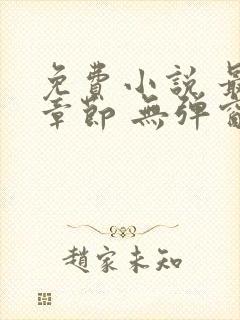 免費小說 最
章節 無彈窗
趙家未知